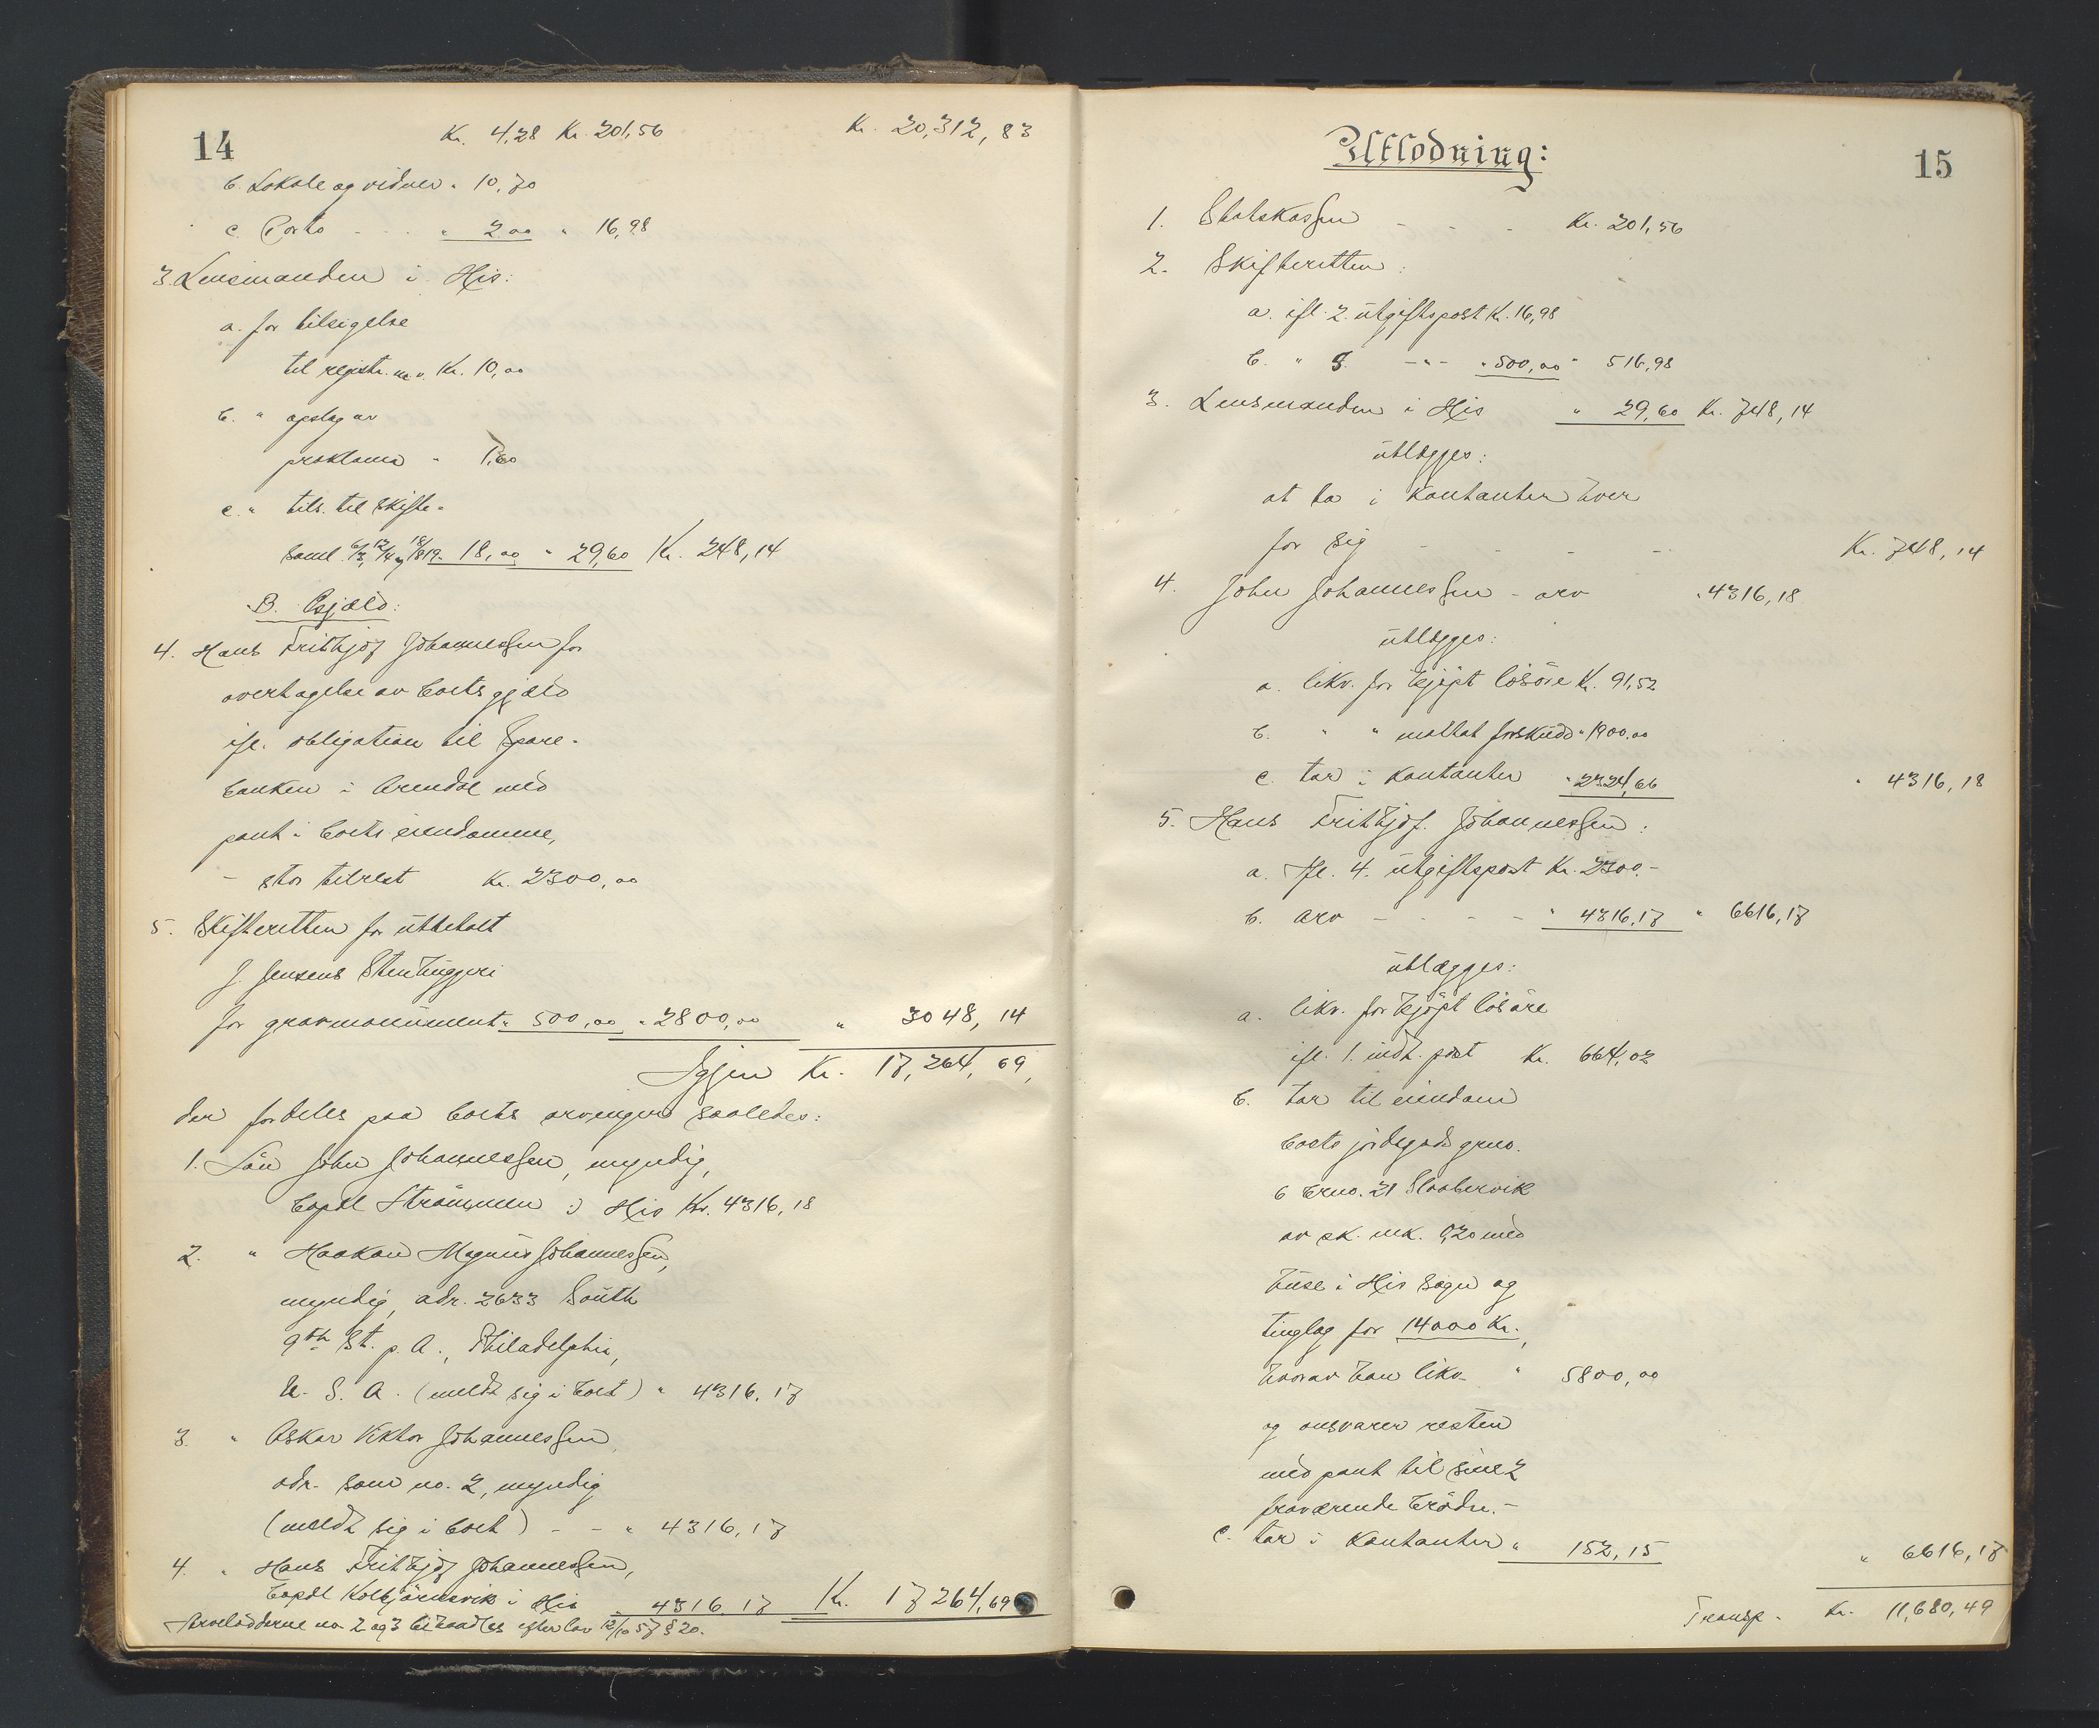 14
Kr. 4,28 Kr. 201,56 Kr. 20,312,83
b. Lokale og vidner " 10,70
c. Porto - - " 2.00 " 16,98
3. Lensmanden i His:
a. for tilsigelse
til registr. m.v. Kr. 10,00
b. " opslag av
proklama " 1,60
c. " tils. til skifte-
saml. 6/3, 12/4 og 18/8 19- 18,00 " 29,60 Kr. 248,14
B. Gjæld:
4. Hans Frithjof Johannessen for
overtagelse av boets gjæld
ifl. obligation til Spare-
banken i Arendal med
pant i boets eiendomme,
- stor tilrest Kr. 2300,00
5. Skifteretten for utbetalt
J. Jensens Stenhuggeri
for gravmonument " 500,00 " 2800,00 " 3048,14
Igjen Kr. 17,264,69,
der fordeles paa boets arvinger saaledes:
1. Sön John Johannessen, myndig,
bopæl Strömmen i His Kr. 4316,18
2. " Haakon Magnus Johannessen,
myndig, adr. 2633 South
9th St. p. A., Philadelphia,
U. S. A. (meldt sig i boet) " 4316,17
3. " Oskar Viktor Johannessen,
adr. som no. 2, myndig
(meldt sig i boet) - - " 4316,17
4. " Hans Frithjof Johannessen,
bopæl Kolbjörnsvik i His " 4316,17 Kr. 17264,69
Arvelodderne no 2 og 3 behandles efter lov 12/10 57 § 20.
15
Utlodning:
1. Statskassen - - - Kr. 201,56
2. Skifteretten:
a. ifl. 2. utgiftspost Kr. 16,98
b. " 5. -"- " 500,00 " 516,98
3. Lensmanden i His " 29,60 Kr. 748,14
utlægges:
at ta i kontanter hver
for sig - - - - Kr. 748,14
4. John Johannessen - arv " 4316,18
utlægges:
a. likv. for kjöpt lösöre Kr. 91,52
b. " " mottat forskudd " 1900.00
c. tar i kontanter " 2324,66 " 4316,18
5. Hans Frithjof Johannessen:
a. Ifl. 4. utgiftspost Kr. 2300.-
b. arv - - - - " 4316,17 " 6616,17
utlægges:
a. likv. for kjöpt lösöre
ifl. 1. indt. post Kr. 664,02
b. tar til eiendom
boets jordegods gno.
6 bno. 21 Slaabervik
av sk. mk. 0,20 med
huse i His sogn og
tinglag for 14000 Kr.,
hvorav han likv. " 5800,00
og ansvarer resten
med pant til sine 2
fraværende brödre.-
c. tar i kontanter " 152,15 " 6616,17
Transp. Kr. 11,680,49